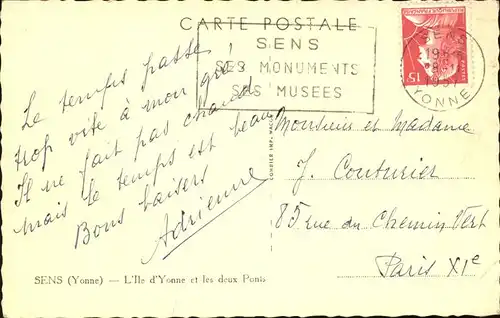 CARTE POSTALE
SENS
SES MONUMENTS
SES MUSEES
SENS
YONNE
15F
Le temps passe
trop vite à mon gré!
Il ne fait pas chaud
mais le temps est beau
Bons baisers
Adrienne
Monsieur et Madame
J. Couturier
85 rue du Chemin Vert
Paris XIe
SENS (Yonne) — L'Ile d'Yonne et les deux Ponts